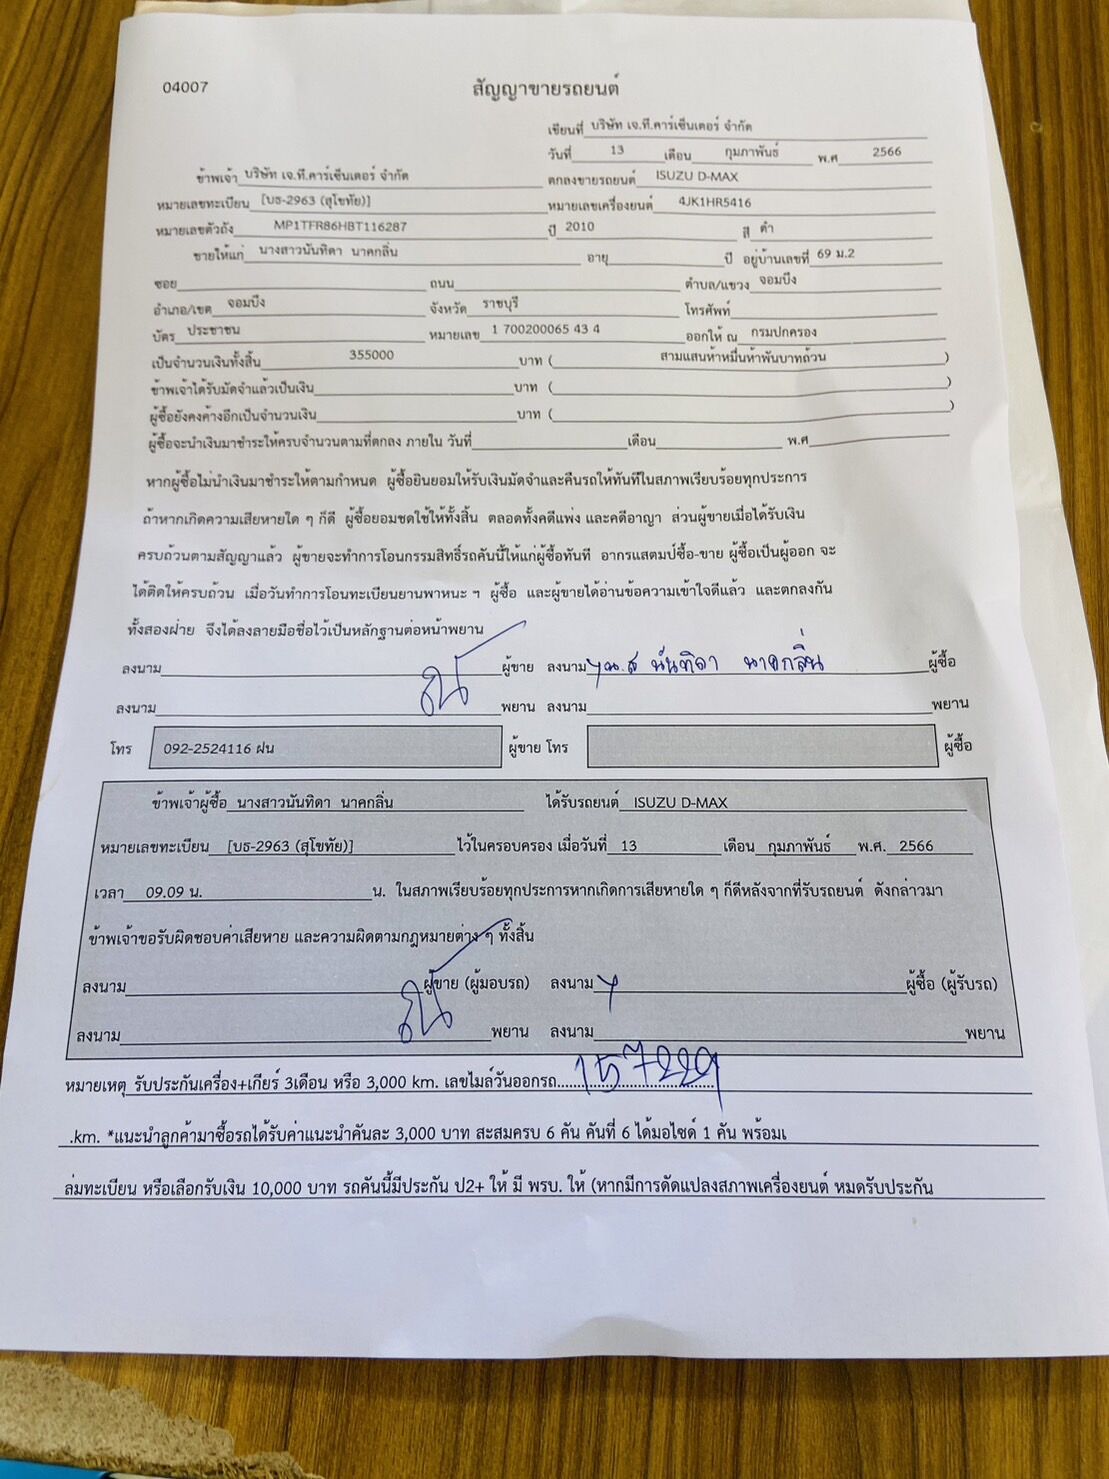 04007
สัญญาขายรถยนต์
เขียนที่ บริษัท เจ.ที.คาร์เซ็นเตอร์ จำกัด
วันที่ 13 เดือน กุมภาพันธ์ พ.ศ 2566
ข้าพเจ้า บริษัท เจ.ที.คาร์เซ็นเตอร์ จำกัด ตกลงขายรถยนต์ ISUZU D-MAX
หมายเลขทะเบียน [บธ-2963 (สุโขทัย)] หมายเลขเครื่องยนต์ 4JK1HR5416
หมายเลขตัวถัง MP1TFR86HBT116287 ปี 2010 สี ดำ
ขายให้แก่ นางสาวนันทิดา นาคกลิ่น อายุ ปี อยู่บ้านเลขที่ 69 ม.2
ซอย ถนน ตำบล/แขวง จอมบึง
อำเภอ/เขต จอมบึง จังหวัด ราชบุรี โทรศัพท์
บัตร ประชาชน หมายเลข 1 700200065 43 4 ออกให้ ณ กรมปกครอง
เป็นจำนวนเงินทั้งสิ้น 355000 บาท ( สามแสนห้าหมื่นห้าพันบาทถ้วน )
ข้าพเจ้าได้รับมัดจำแล้วเป็นเงิน บาท ( )
ผู้ซื้อยังคงค้างอีกเป็นจำนวนเงิน บาท ( )
ผู้ซื้อจะนำเงินมาชำระให้ครบจำนวนตามที่ตกลง ภายใน วันที่ เดือน พ.ศ
หากผู้ซื้อไม่นำเงินมาชำระให้ตามกำหนด ผู้ซื้อยินยอมให้รับเงินมัดจำและคืนรถให้ทันทีในสภาพเรียบร้อยทุกประการ
ถ้าหากเกิดความเสียหายใด ๆ ก็ดี ผู้ซื้อยอมชดใช้ให้ทั้งสิ้น ตลอดทั้งคดีแพ่ง และคดีอาญา ส่วนผู้ขายเมื่อได้รับเงิน
ครบถ้วนตามสัญญาแล้ว ผู้ขายจะทำการโอนกรรมสิทธิ์รถคันนี้ให้แก่ผู้ซื้อทันที อากรแสตมป์ซื้อ-ขาย ผู้ซื้อเป็นผู้ออก จะ
ได้ติดให้ครบถ้วน เมื่อวันทำการโอนทะเบียนยานพาหนะ ฯ ผู้ซื้อ และผู้ขายได้อ่านข้อความเข้าใจดีแล้ว และตกลงกัน
ทั้งสองฝ่าย จึงได้ลงลายมือชื่อไว้เป็นหลักฐานต่อหน้าพยาน
ลงนาม ผู้ขาย ลงนาม น.ส นันทิดา นาคกลิ่น ผู้ซื้อ
ลงนาม พยาน ลงนาม พยาน
โทร 092-2524116 ฝน ผู้ขาย โทร ผู้ซื้อ
ข้าพเจ้าผู้ซื้อ นางสาวนันทิดา นาคกลิ่น ได้รับรถยนต์ ISUZU D-MAX
หมายเลขทะเบียน [บธ-2963 (สุโขทัย)] ไว้ในครอบครอง เมื่อวันที่ 13 เดือน กุมภาพันธ์ พ.ศ. 2566
เวลา 09.09 น. น. ในสภาพเรียบร้อยทุกประการหากเกิดการเสียหายใด ๆ ก็ดีหลังจากที่รับรถยนต์ ดังกล่าวมา
ข้าพเจ้าขอรับผิดชอบค่าเสียหาย และความผิดตามกฎหมายต่าง ๆ ทั้งสิ้น
ลงนาม ผู้ขาย (ผู้มอบรถ) ลงนาม ผู้ซื้อ (ผู้รับรถ)
ลงนาม พยาน ลงนาม พยาน
หมายเหตุ รับประกันเครื่อง+เกียร์ 3เดือน หรือ 3,000 km. เลขไมล์วันออกรถ 157229
.km. *แนะนำลูกค้ามาซื้อรถได้รับค่าแนะนำคันละ 3,000 บาท สะสมครบ 6 คัน คันที่ 6 ได้มอไซด์ 1 คัน พร้อมเ
ล่มทะเบียน หรือเลือกรับเงิน 10,000 บาท รถคันนี้มีประกัน ป2+ ให้ มี พรบ. ให้ (หากมีการดัดแปลงสภาพเครื่องยนต์ หมดรับประกัน